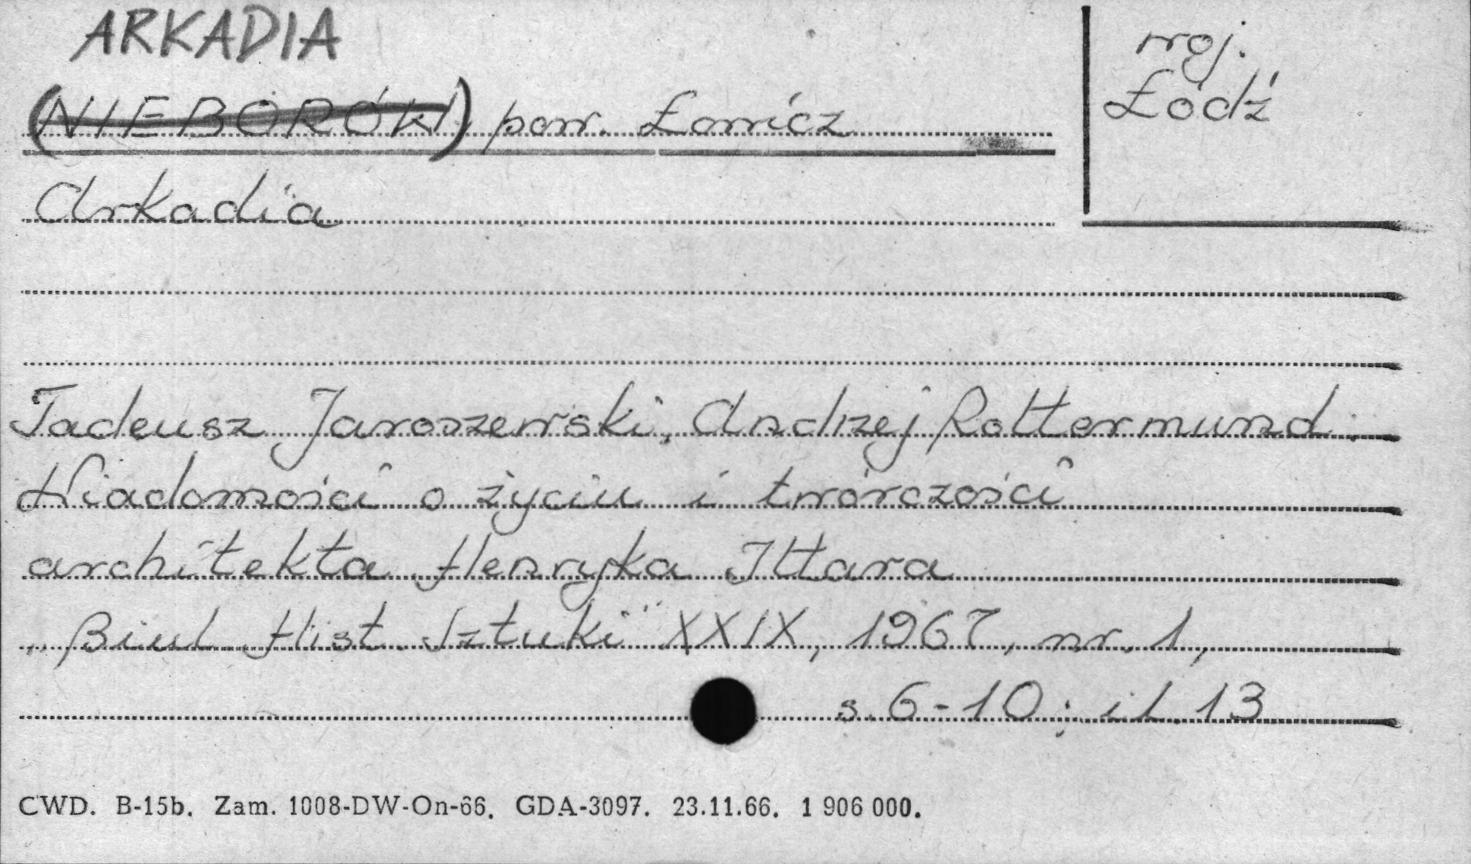 ARKADIA
(NIEBORÓW) pow. Łowicz
woj.
Łódź
Arkadia
Tadeusz Jaroszewski, Andrzej Rottermund.
Wiadomości o życiu i twórczości
architekta Henryka Ittara
„Biul. Hist. Sztuki" XXIX, 1967, nr. 1,
s. 6-10; il. 13
CWD. B-15b. Zam. 1008-DW-On-66. GDA-3097. 23.11.66. 1 906 000.